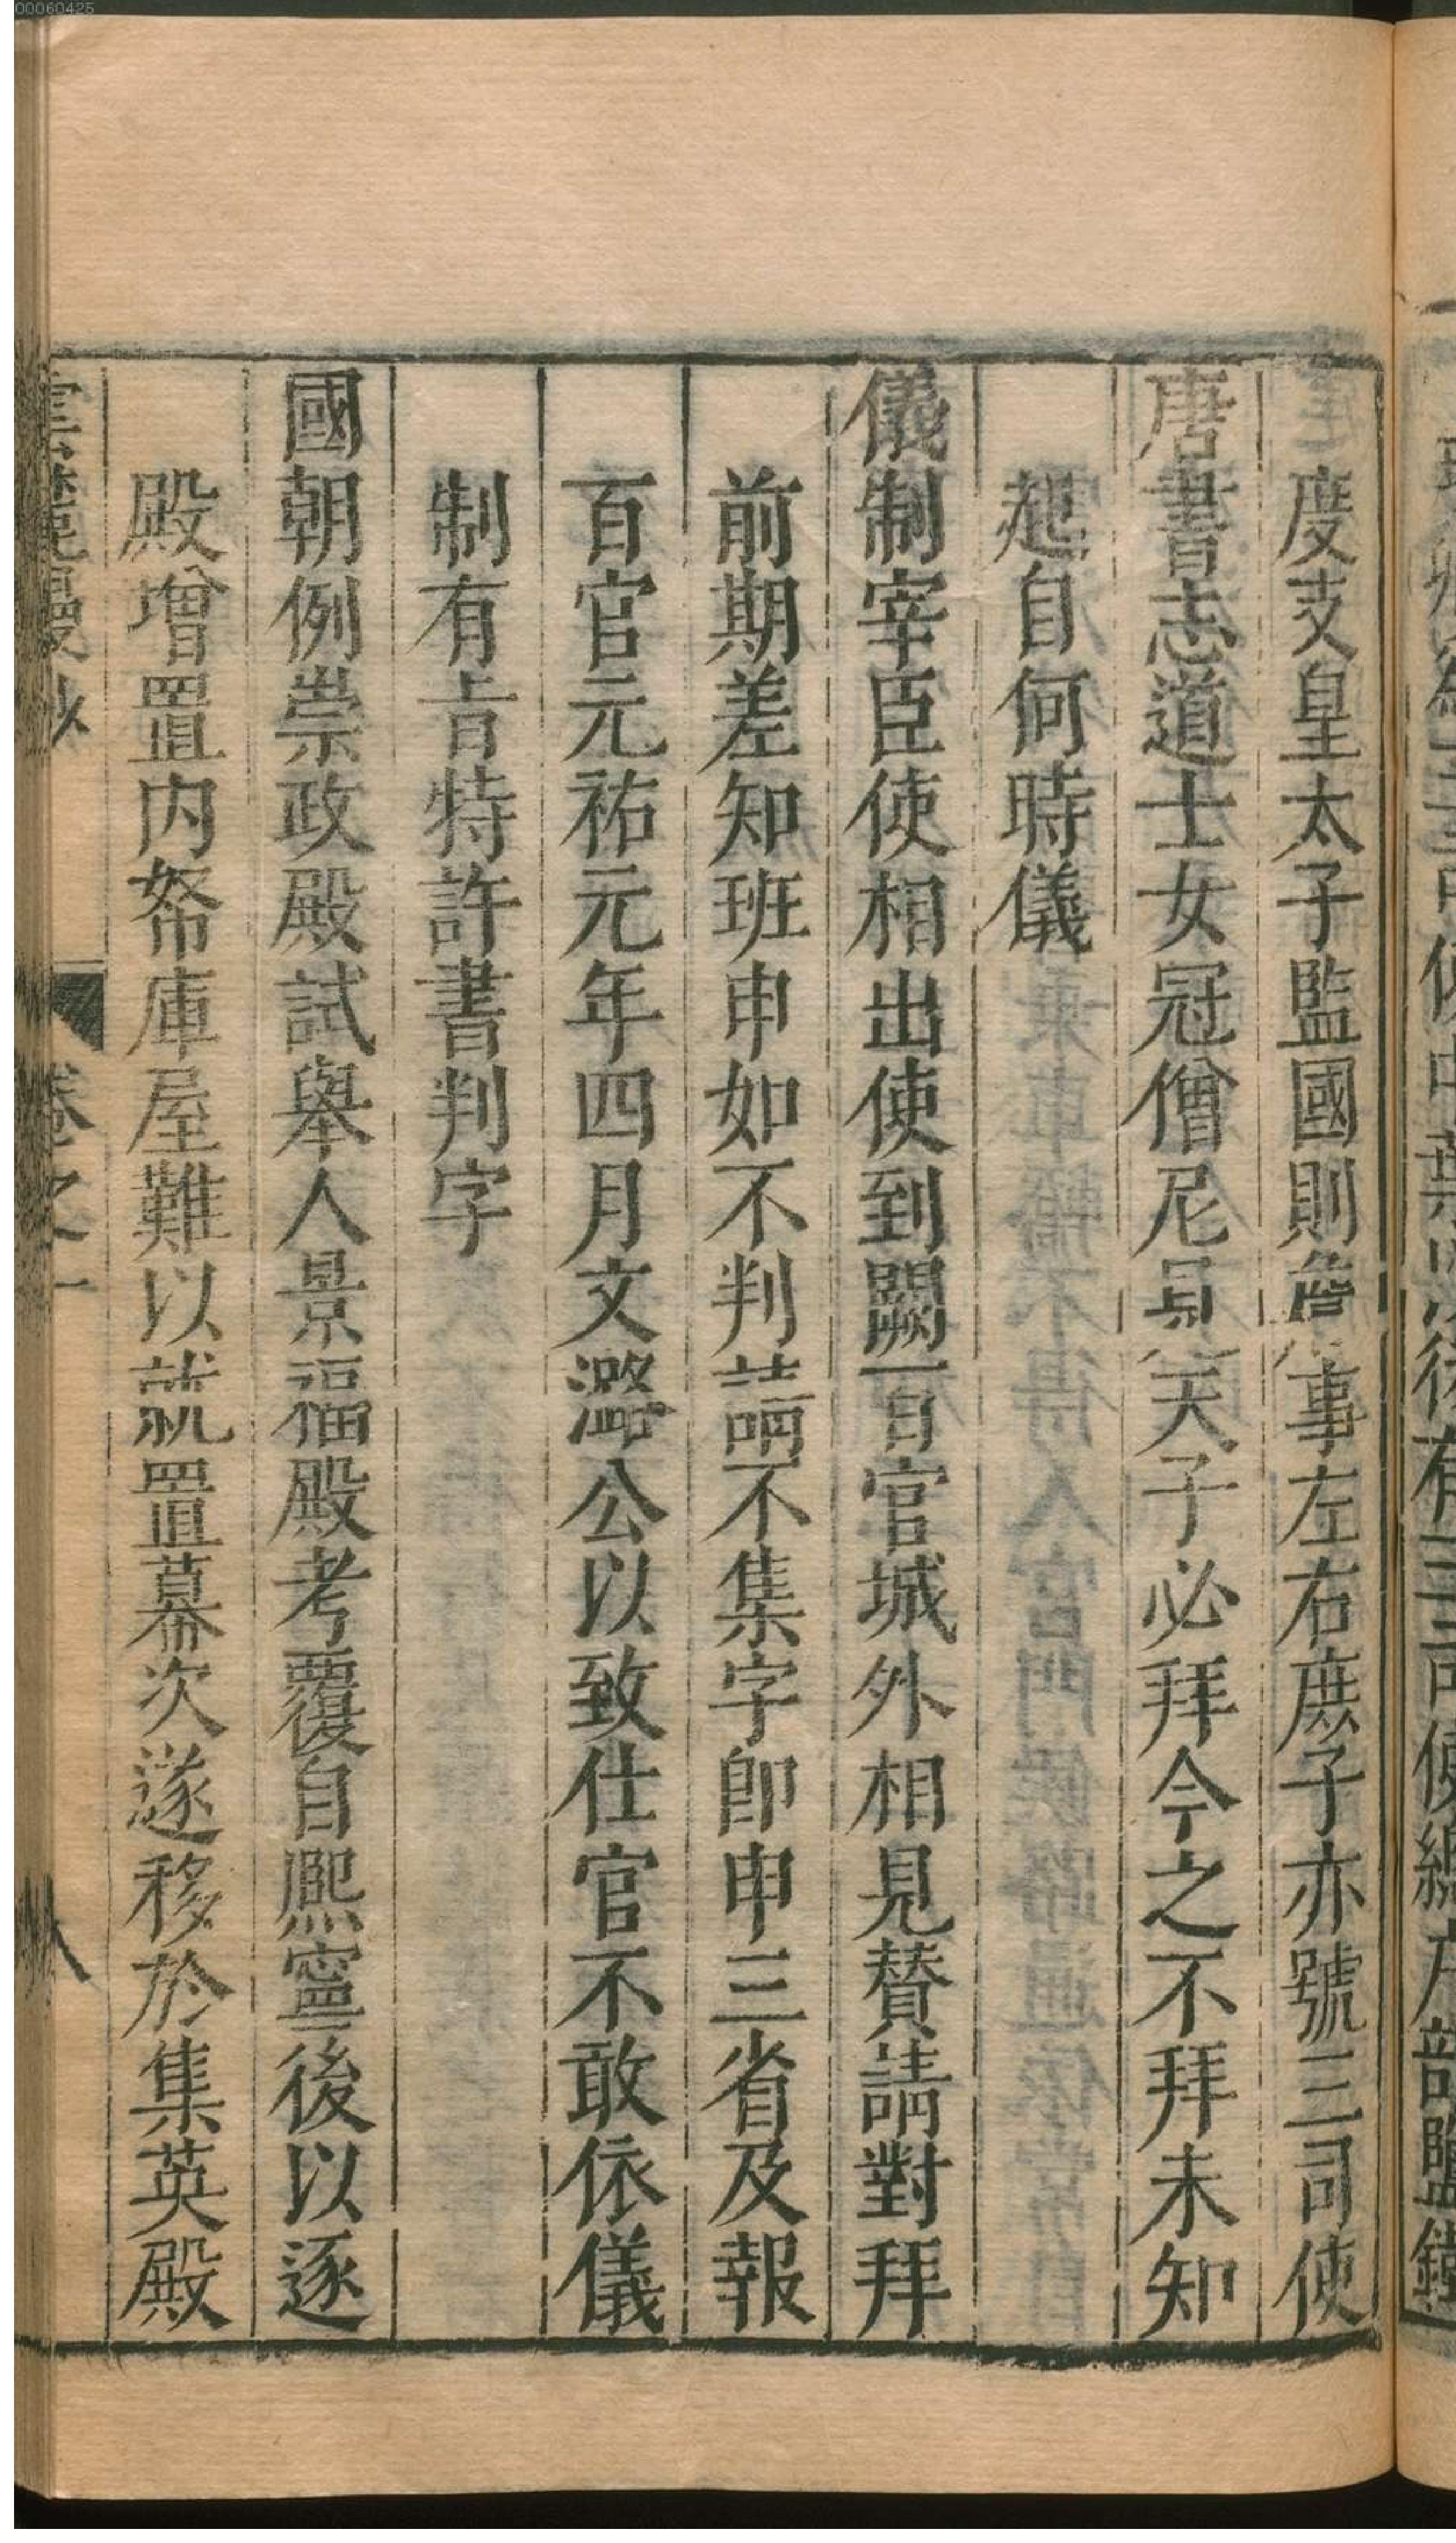 度支皇太子監國則詹事左右庶子亦號三司使
唐書志道士女冠僧尼見天子必拜今之不拜未知
起自何時儀
儀制宰臣使相出使到闕百官城外相見贊請對拜
前期差知班申如不判請不集字卽申三省及報
百官元祐元年四月文潞公以致仕官不敢依儀
制有旨特許書判字
國朝例崇政殿試舉人景福殿考覆自熈寧後以逐
殿增置內帑庫屋難以就置幕次遂移於集英殿
雲麓漫抄 卷之一 八
00060425